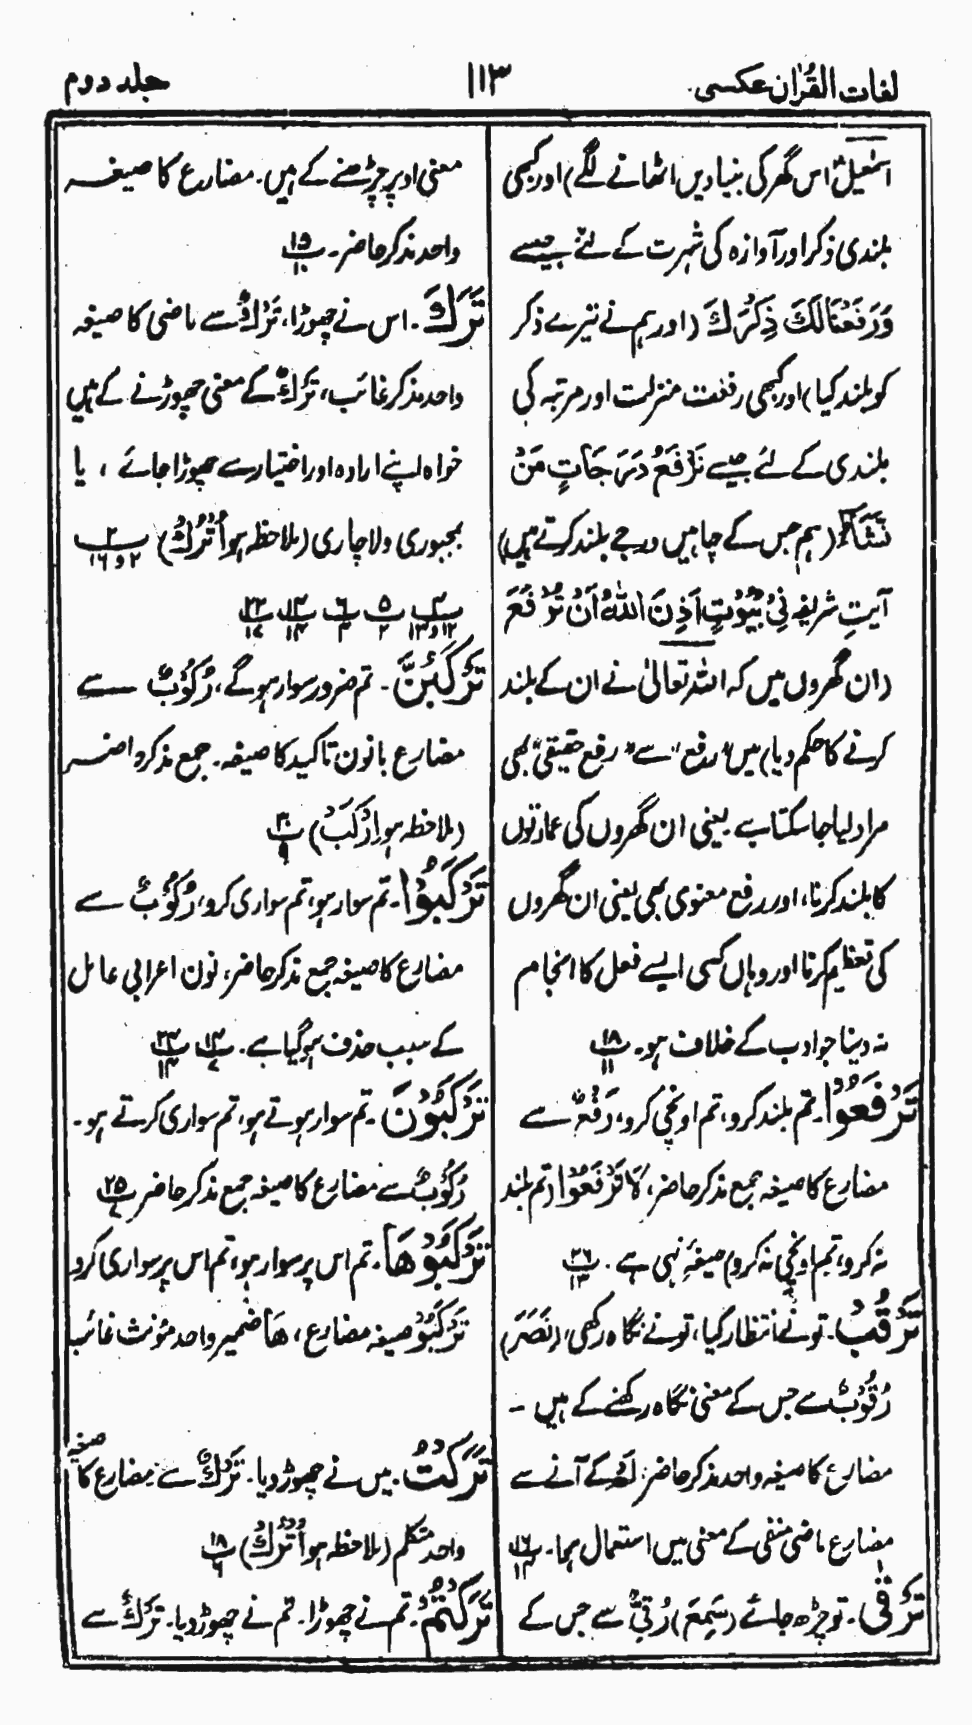 لغات القرآن عکسی
۱۱۳
جلد دوم
اسمٰعیلؑ اس گھر کی بنیادیں اٹھانے لگے) اور کبھی
بلندی ذکر اور آوازہ کی شہرت کے لئے جیسے
وَرَفَعْنَا لَكَ ذِكْرَكَ (اور ہم نے تیرے ذکر
کو بلند کیا) اور کبھی رفعت منزلت اور مرتبہ کی
بلندی کے لئے جیسے نَرْفَعُ دَرَجَاتٍ مَنْ
نَشَاءُ (ہم جس کے چاہیں درجے بلند کرتے ہیں)
آیتِ شریفہ فِیْ بُیُوْتٍ اَذِنَ اللّٰهُ اَنْ تُرْفَعَ
(ان گھروں میں کہ اللہ تعالیٰ نے ان کے بلند
کرنے کا حکم دیا) میں "رفع" سے "رفع حقیقی" بھی
مراد لیا جا سکتا ہے یعنی ان گھروں کی عمارتوں
کا بلند کرنا، اور رفع معنوی بھی یعنی ان گھروں
کی تعظیم کرنا اور وہاں کسی ایسے فعل کا انجام
نہ دینا جو ادب کے خلاف ہو۔ ۱۸/۱۱
تَرْفَعُوْا۔ تم بلند کرو، تم اونچی کرو، رَفْعٌ سے
مضارع کا صیغہ جمع مذکر حاضر، لَا تَرْفَعُوْا (تم بلند
نہ کرو، تم اونچی نہ کرو) صیغۂ نہی ہے۔ ۲۶/۱۳
تَرْقُبْ۔ تو نے انتظار کیا، تو نے نگاہ رکھی، (نَصَرَ)
رُقُوْبٌ سے جس کے معنی نگاہ رکھنے کے ہیں۔
مضارع کا صیغہ واحد مذکر حاضر، لَمْ کے آنے سے
مضارع ماضی منفی کے معنی میں استعمال ہوا۔ ۱۶/۱۴
تَرْقٰی۔ تو چڑھ جائے (سَمِعَ) رُقِیٌّ سے جس کے
معنی اوپر چڑھنے کے ہیں۔ مضارع کا صیغہ
واحد مذکر حاضر۔ ۱۵/۱۰
تَرَكَ۔ اس نے چھوڑا، تَرْكٌ سے ماضی کا صیغہ
واحد مذکر غائب، تَرْكٌ کے معنی چھوڑنے کے ہیں
خواہ اپنے ارادہ اور اختیار سے چھوڑا جائے، یا
بمجبوری ولاچاری (ملاحظہ ہو اُتْرُكْ) ۲/۲و۱۶
۴/۱۲و۱۳ ۵/۲ ۶/۴ ۱۴/۱۴ ۲۲/۱۷
تَرْكَبُنَّ۔ تم ضرور سوار ہوگے، رُكُوْبٌ سے
مضارع بانون تاکید کا صیغہ۔ جمع مذکر حاضر
(ملاحظہ ہو اِرْكَبْ) ۳۰/۹
تَرْكَبُوْا۔ تم سوار ہو، تم سواری کرو، رُكُوْبٌ سے
مضارع کا صیغہ جمع مذکر حاضر، نون اعرابی عامل
کے سبب حذف ہوگیا ہے۔ ۱۴/۷ ۲۴/۱۴
تَرْكَبُوْنَ۔ تم سوار ہوتے ہو، تم سواری کرتے ہو۔
رُكُوْبٌ سے مضارع کا صیغہ جمع مذکر حاضر ۲۵/۷
تَرْكَبُوْهَا۔ تم اس پر سوار ہو، تم اس پر سواری کرو
تَرْكَبُوْ صیغہ مضارع، هَا ضمیر واحد مؤنث غائب
تَرَكْتُ۔ میں نے چھوڑ دیا۔ تَرْكٌ سے مضارع کا صیغہ
واحد متکلم (ملاحظہ ہو اُتْرُكْ) ۱۸/۶
تَرَكْتُمْ۔ تم نے چھوڑا۔ تم نے چھوڑ دیا۔ تَرْكٌ سے